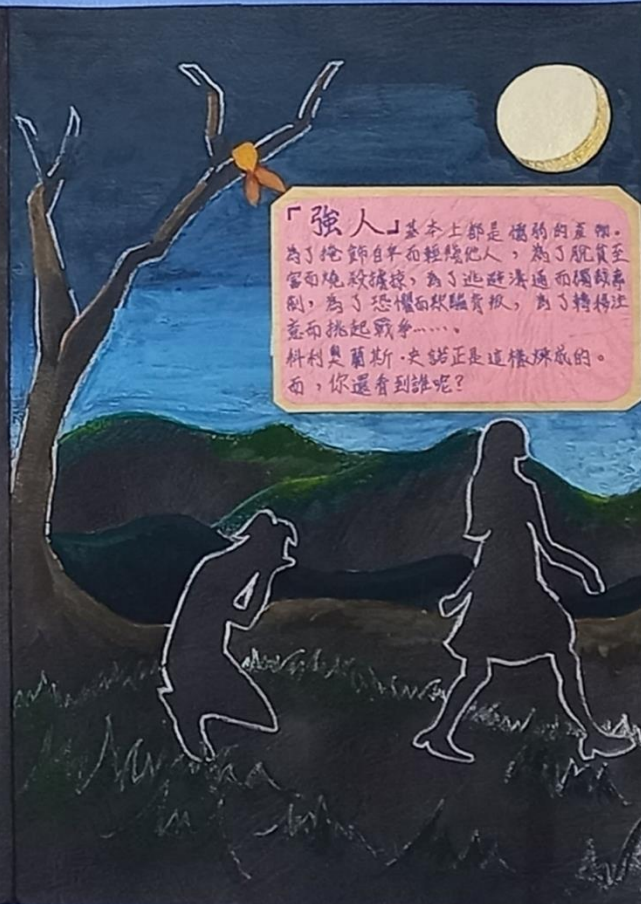 「強人」基本上都是懦弱的直銷。
為了掩飾自卑而輕賤他人，為了脫貧至
富而燒殺擄掠，為了逃避溝通而獨斷專
制，為了恐懼而欺騙背叛，為了轉移注
意而挑起戰爭……。
科利奧蘭納斯·史諾正是這樣煉成的。
而，你還看到誰呢？